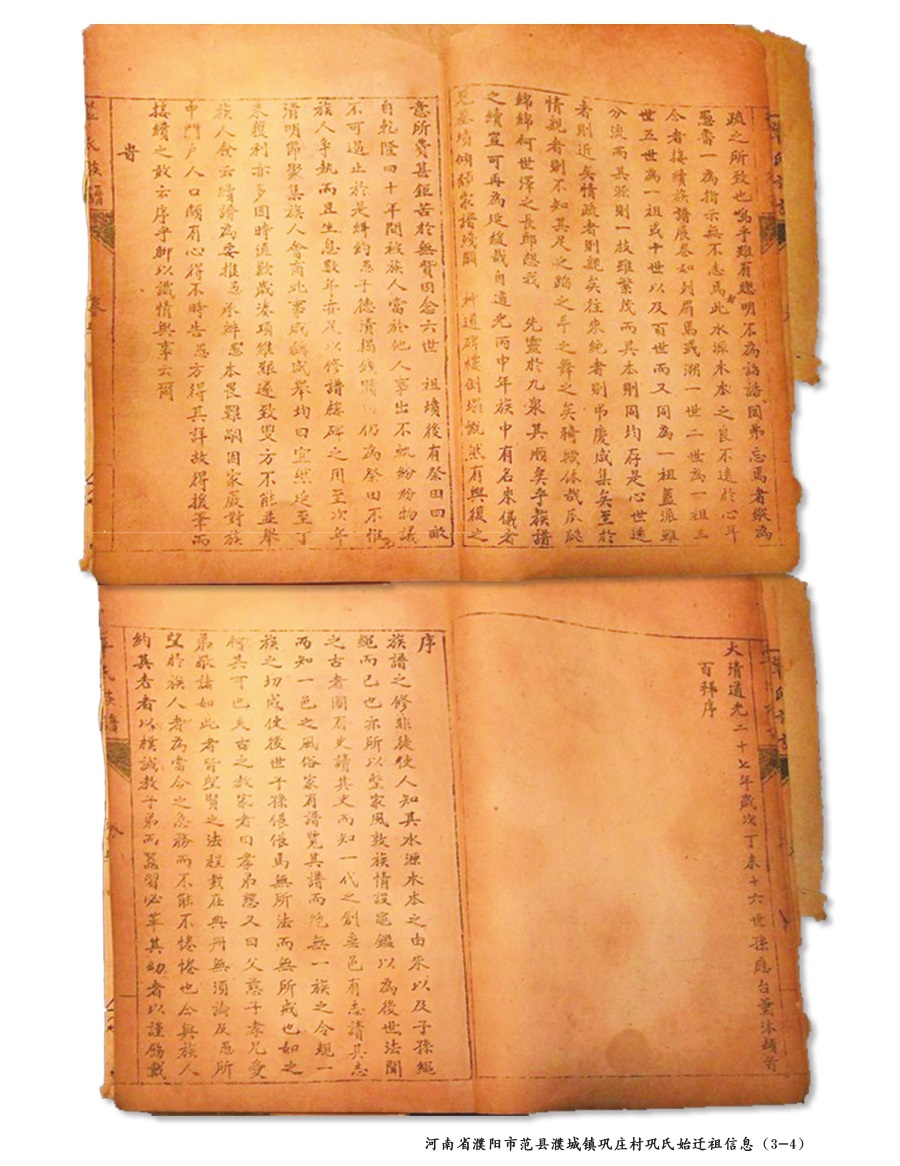 疏之所致也嗚乎雖有聰明不為誥誥因弟忘焉者縱為
愚魯一為指示無不志焉此水源木本之良不遠於心年
今者接續族譜展卷如列眉焉或溯一世二世為一祖三
世五世為一祖或十世以及百世而又同為一祖蓋派雖
分流而其源則一枝雖繁茂而其本則同均存是心世遠
者則近矣情疏者則親矣往來絶者則弔慶咸集矣至於
情親者則不知其足之蹈之手之舞之矣猗歟休哉瓜瓞
綿綿何世澤之長郎想我 先靈於九泉其順矣乎族譜
之續豈可再為延緩哉自道光丙申年族中有名來儀者
見墓墳傾頹家譜殘闕 神道碑樓倒塌慨然有興復之
意所費甚鉅苦於無貲因念六世 祖墳後有祭田四畝
自乾隆四十年間被族人當於他人事出不軌紛紛物議
不可遏止於是糾約愚子德清揭錢贖 仍為祭田不惟
族人爭執而且生息數年亦足以修譜樓碑之用至次年
清明節聚集族人會商此事咸稱盛舉均曰宜然延至丁
未獲利亦多因時值歉歲事項維艱遂致雙方不能並舉
族人僉云續譜為妥推愚承辦愚本畏難嗣因家嚴對族
中門戶人口頗有心得不時告愚方得其詳故得援筆而
接續之敢云序乎聊以識情與事云爾
旹
氏族譜
大清道光二十七年歲次丁未十六世孫應台薰沐頓首
百拜序
序
族譜之修非徒使人知其水源木本之由來以及子孫繩
繩而已也亦所以整家風敦族情設龜鑑以為後世法聞
之古者國有史讀其史而知一代之創垂邑有志讀其志
而知一邑之風俗家有譜覽其譜而絶無一族之令規一
族之切戒使後世子孫倀倀焉無所法而無所戒也如之
何其可也夫古之教家者曰孝弟慈又曰父慈子孝兄愛
弟敬諸如此者皆聖賢之法程載在典册無須論及愚所
望於族人者為當今之急務而不能不惓惓也今與族人
約其老者以樸誠教子弟而蒭習必革其幼者以謹飭戴
氏族譜
河南省濮阳市范县濮城镇巩庄村巩氏始迁祖信息（3—4）